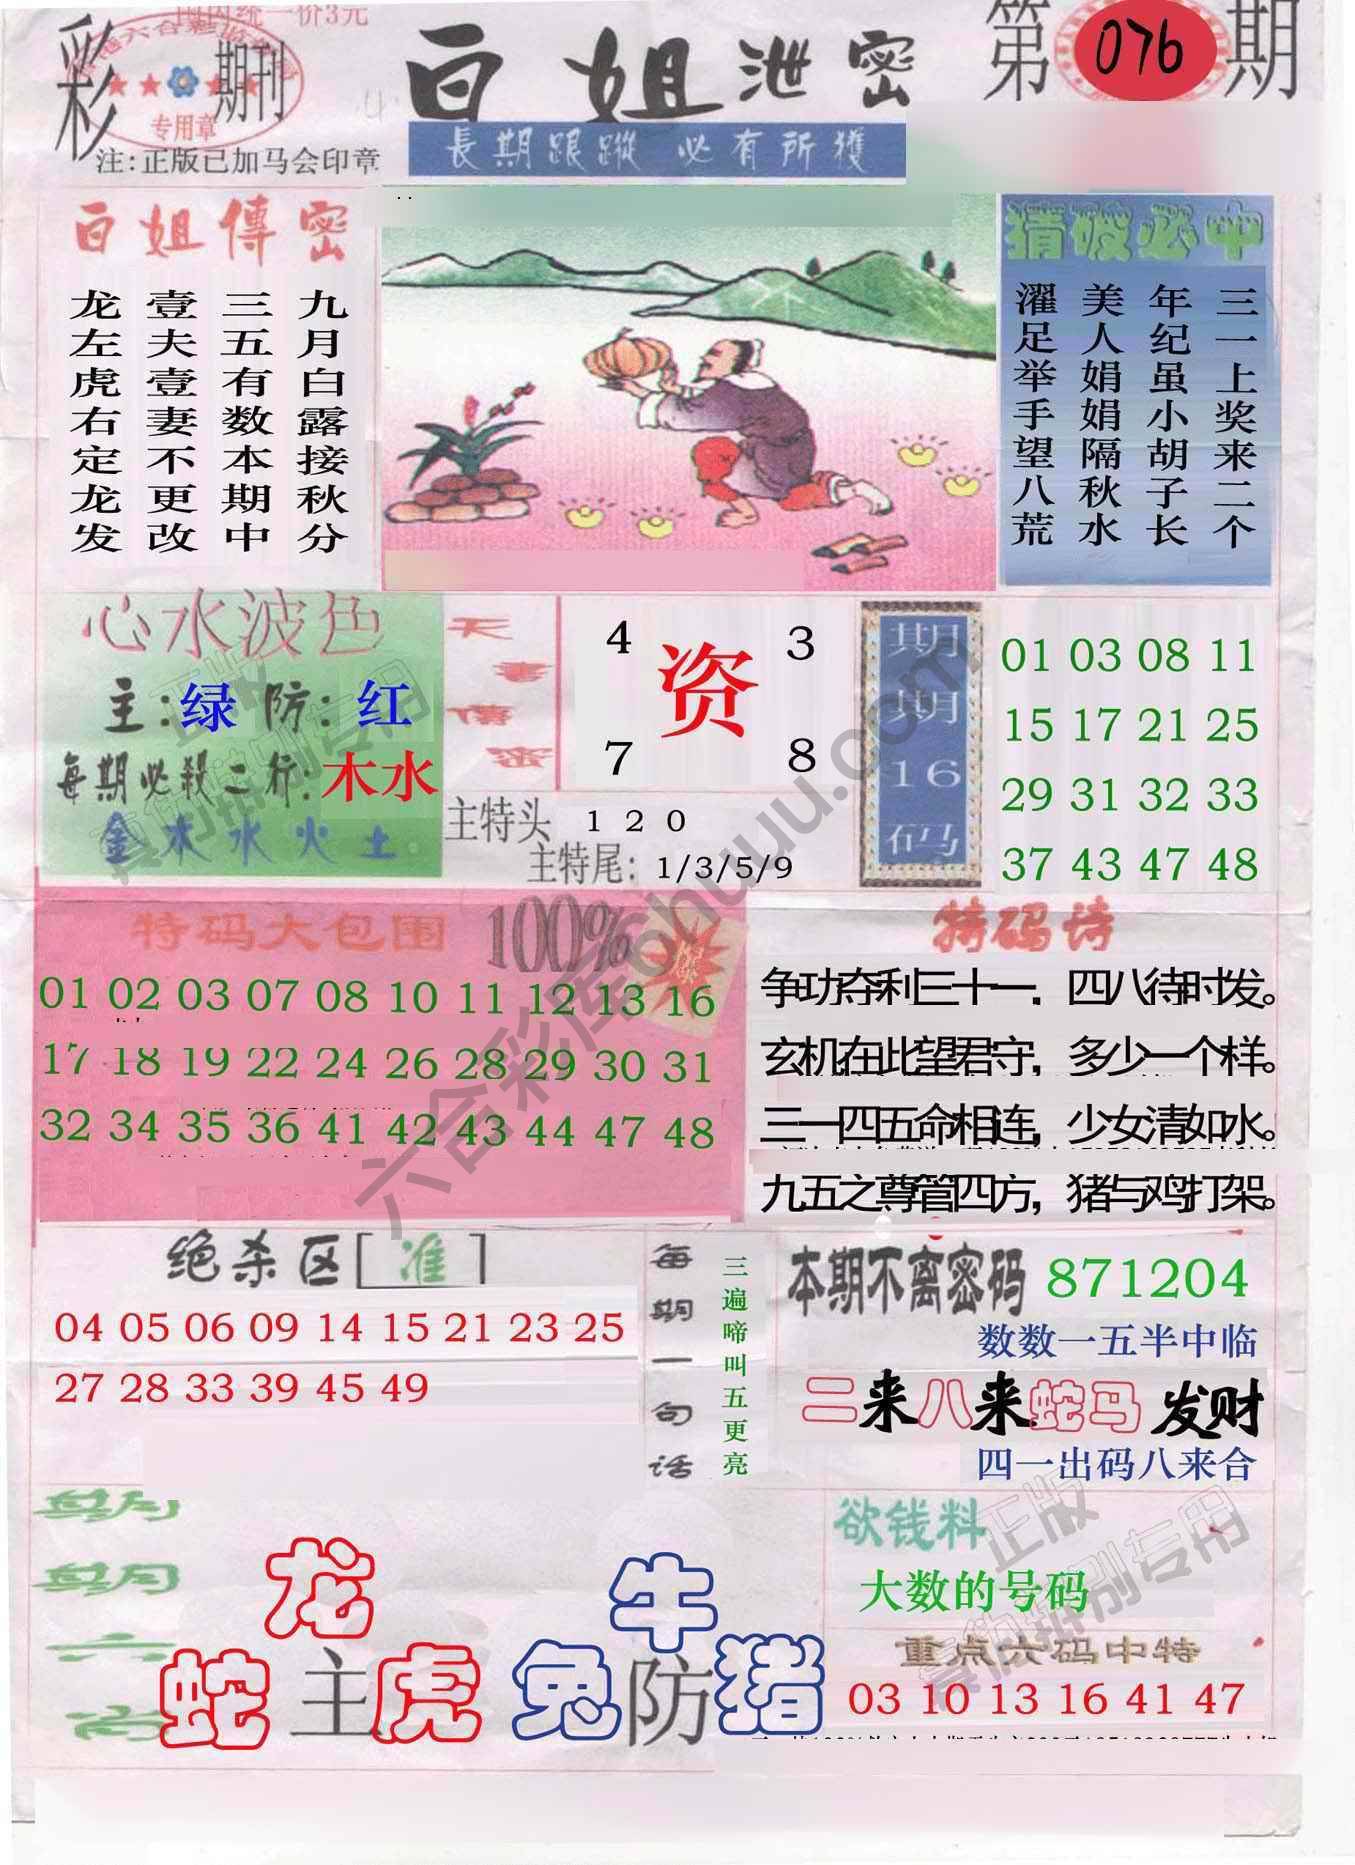 国内统一价3元
彩
期刊
专用章
注:正版已加马会印章
白姐泄密
第076期
長期跟蹤 必有所獲
白姐傳密
九月白露接秋分
三五有数本期中
壹夫壹妻不更改
龙左虎右定龙发
猜破必中
三一上奖来二个
年纪虽小胡子长
美人娟娟隔秋水
濯足举手望八荒
心水波色
主:绿 防:红
每期必殺二行:木水
金木水火土
天書傳密
4 3
资
7 8
主特头 1 2 0
主特尾: 1/3/5/9
期期16码
01 03 08 11
15 17 21 25
29 31 32 33
37 43 47 48
特码大包围 100% 爆
01 02 03 07 08 10 11 12 13 16
17 18 19 22 24 26 28 29 30 31
32 34 35 36 41 42 43 44 47 48
特码诗
争功夺利三十一，四八待时发。
玄机在此望君守，多少一个样。
三一四五命相连，少女清如水。
九五之尊管四方，猪与鸡打架。
绝杀区[准]
04 05 06 09 14 15 21 23 25
27 28 33 39 45 49
每期一句话
三遍啼叫五更亮
本期不离密码 871204
数数一五半中临
二来八来蛇马发财
四一出码八来合
期期六肖
龙
蛇主虎
牛
兔防猪
欲钱料
大数的号码
重点六码中特
03 10 13 16 41 47
六合彩库ohuu.com
正版